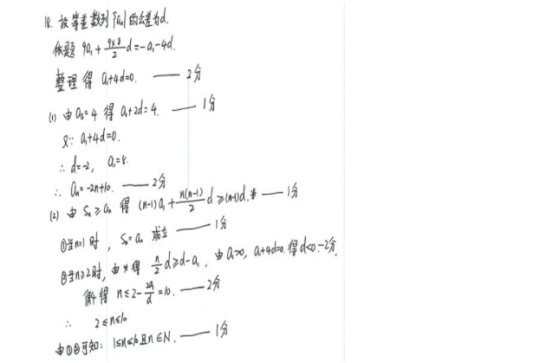 18. 设等差数列{aₙ}的公差为d.
依题 9a₁+(9×8)/2 d=-a₁-4d.
整理得 a₁+4d=0. —— 2分
(1) 由 a₃=4 得 a₁+2d=4. —— 1分
又∵ a₁+4d=0.
∴ d=-2, a₁=8.
∴ aₙ=-2n+10. —— 2分
(2) 由 Sₙ≥aₙ 得 (n-1)a₁+n(n-1)/2 d≥(n-1)d.* —— 1分
①当n=1时, Sₙ=aₙ 成立 —— 1分
②当n≥2时, 由*得 n/2 d≥d-a₁. 由a₁>0, a₁+4d=0.得d<0.-2分.
解得 n≤2-2a₁/d=10. —— 2分
∴ 2≤n≤10
由①②可知: 1≤n≤10且n∈N. —— 1分